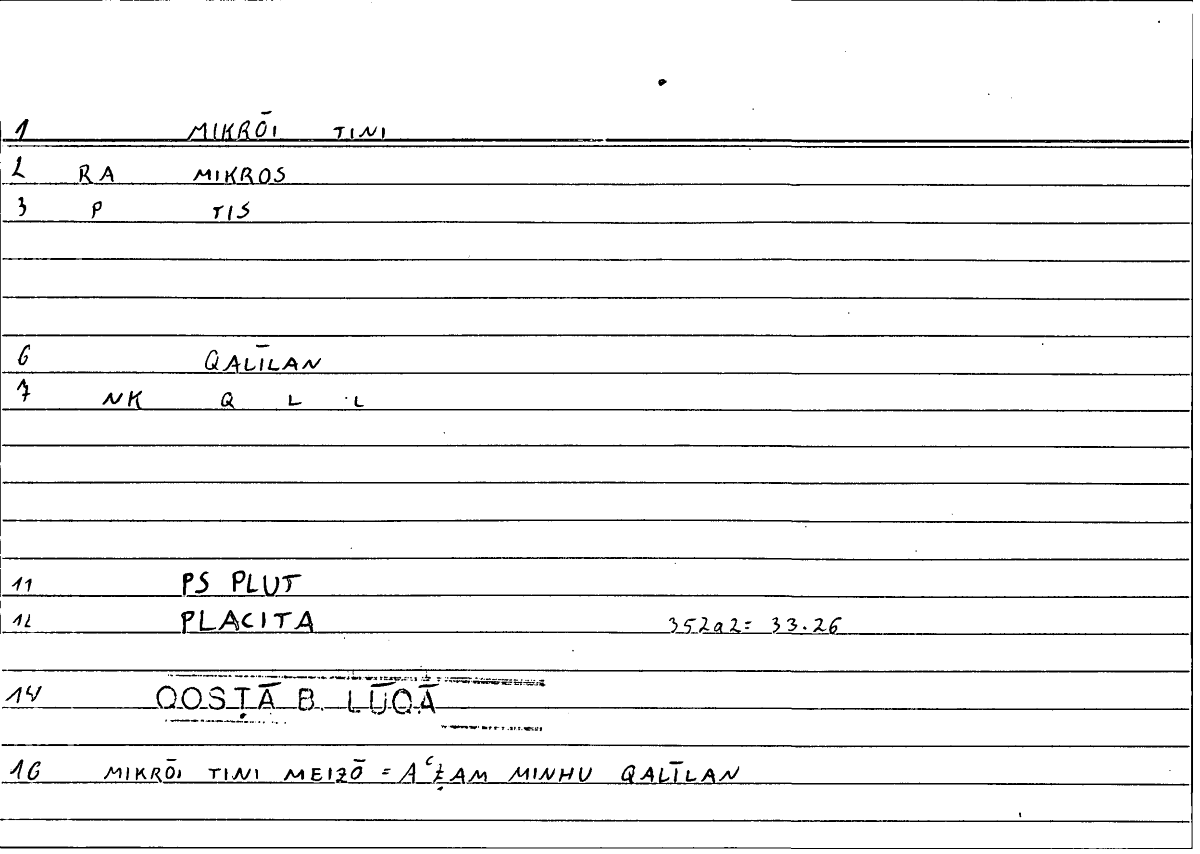 1 MIKRŌI TINI
2 RA MIKROS
3 P TIS
6 QALĪLAN
7 NK Q L L
11 PS PLUT
12 PLACITA 352a2= 33.26
14 QOSṬĀ B. LŪQĀ
16 MIKRŌI TINI MEIZŌ = AʿẒAM MINHU QALĪLAN